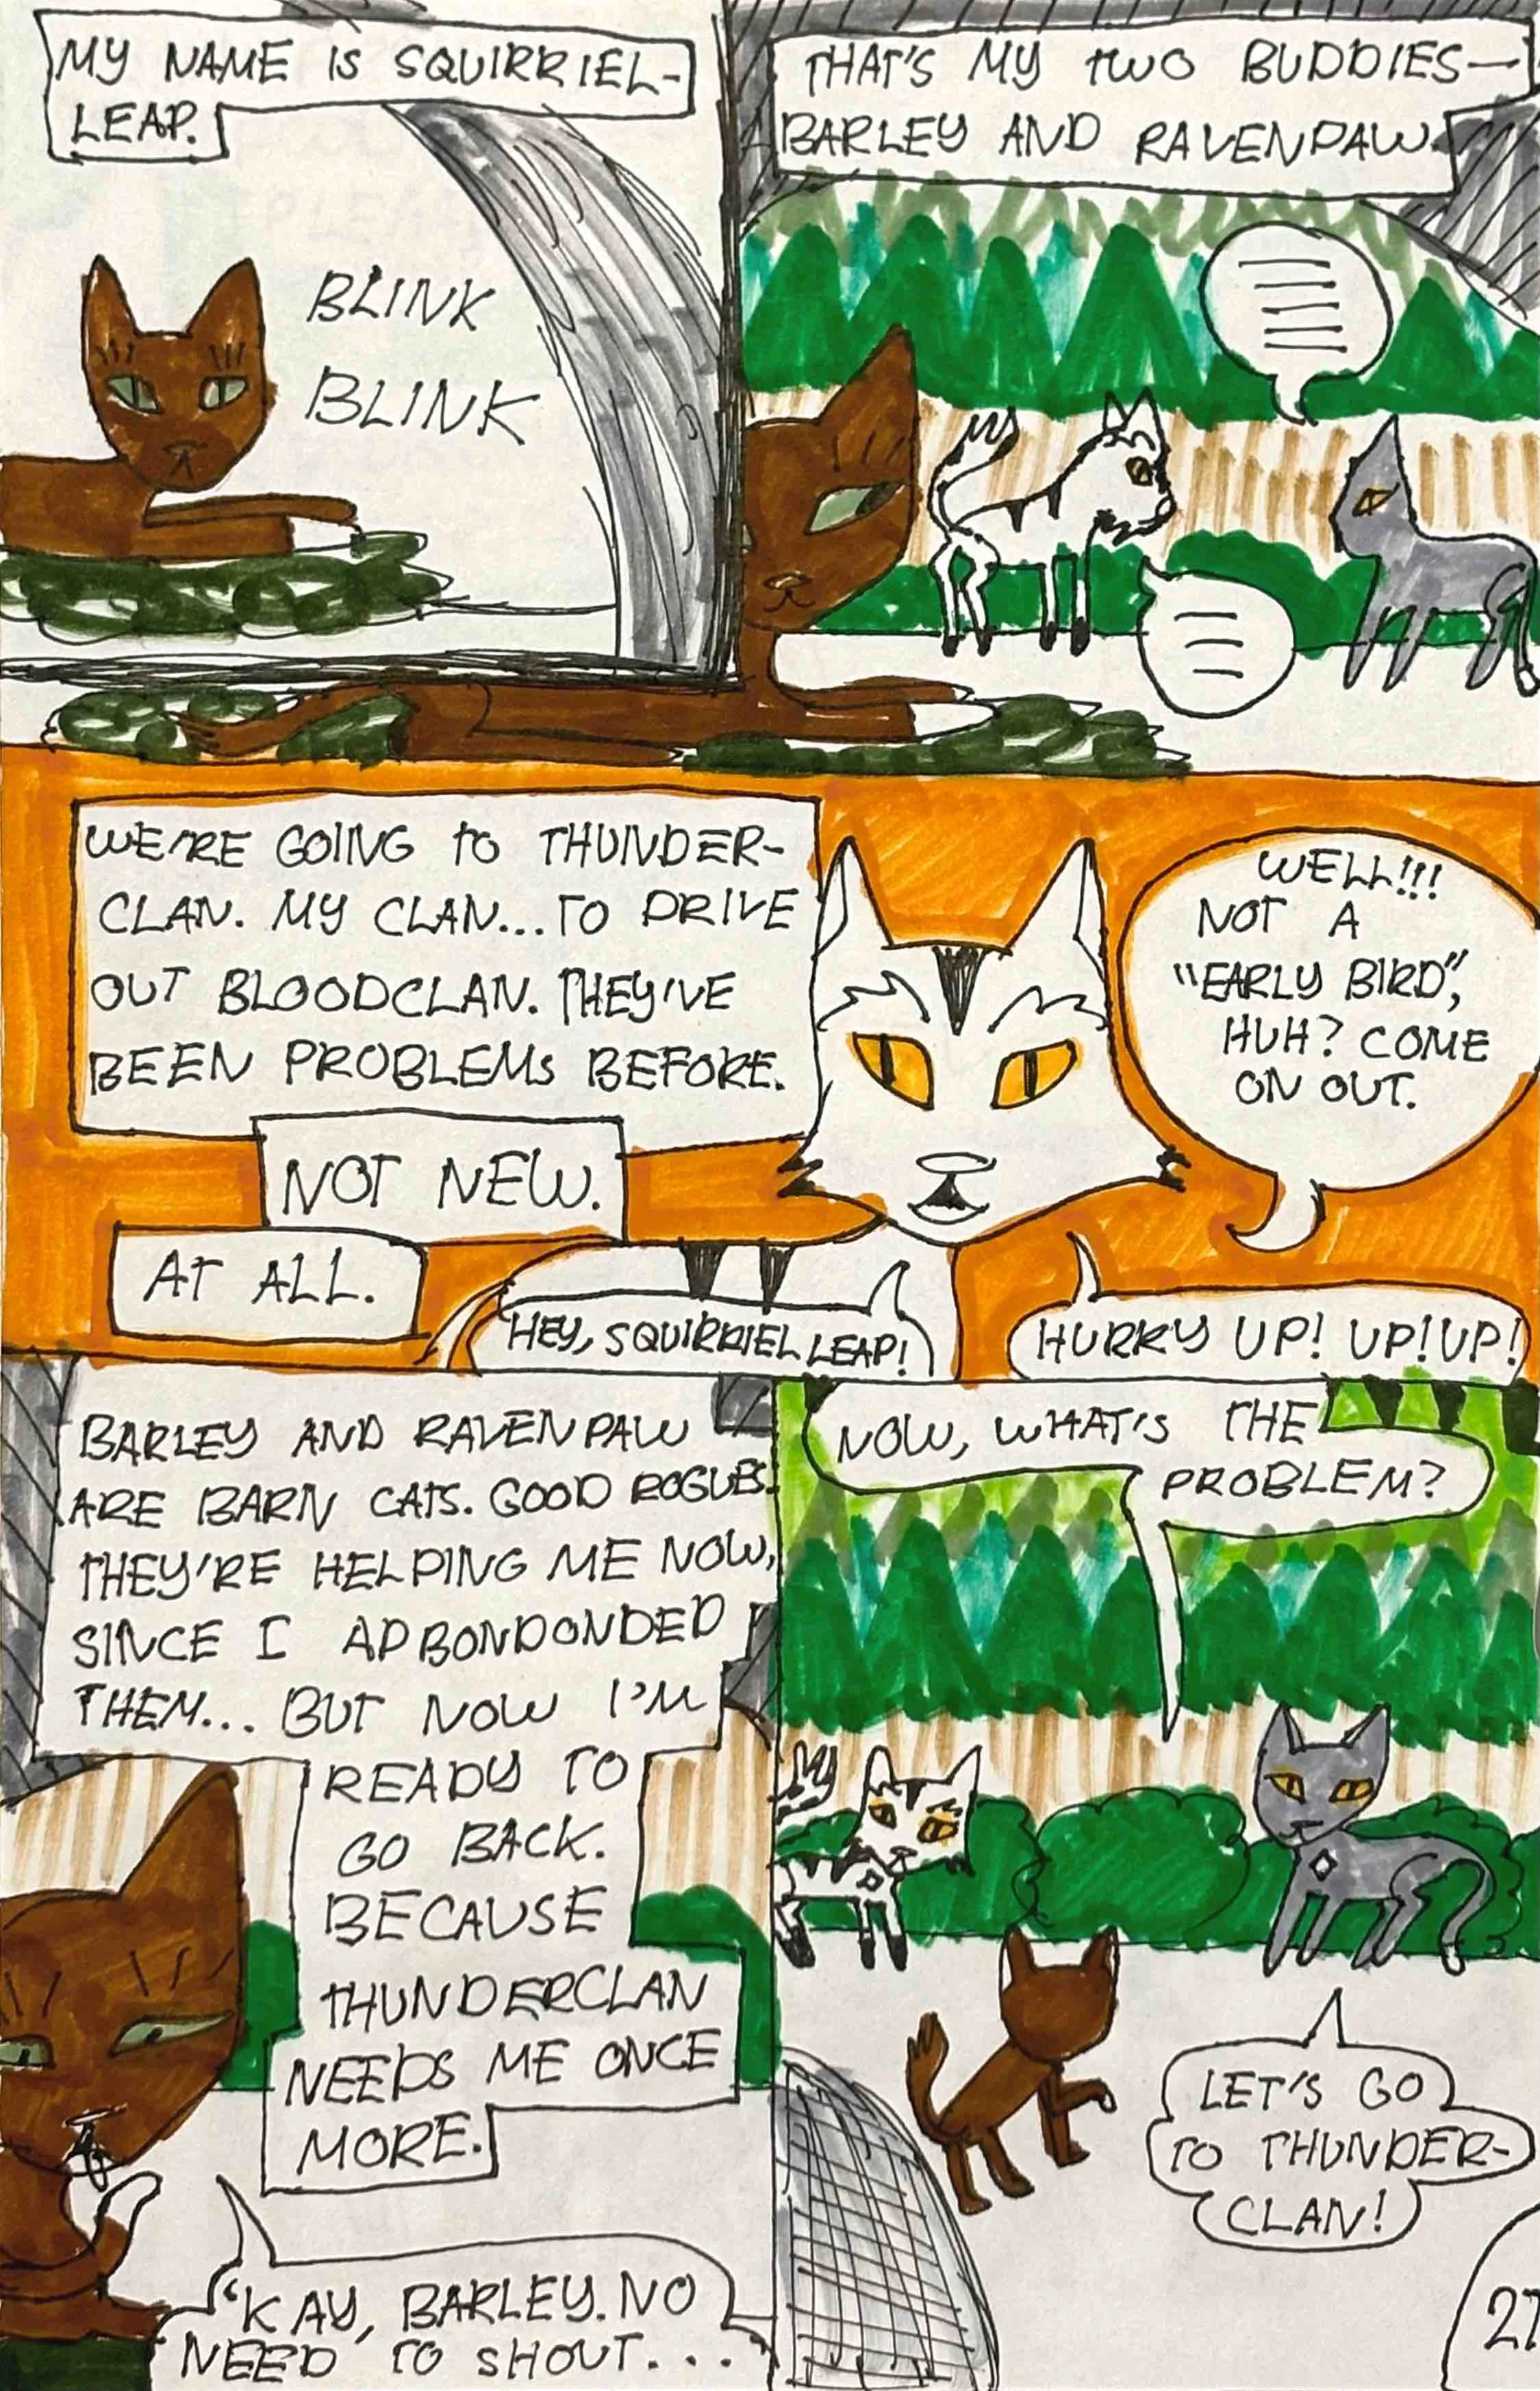 MY NAME IS SQUIRRIEL-
LEAP.
BLINK
BLINK
THAT'S MY TWO BUDDIES—
BARLEY AND RAVENPAW.
WE'RE GOING TO THUNDER-
CLAN. MY CLAN...TO DRIVE
OUT BLOODCLAN. THEY'VE
BEEN PROBLEMS BEFORE.
NOT NEW.
AT ALL.
WELL!!!
NOT A
"EARLY BIRD",
HUH? COME
ON OUT.
HEY, SQUIRRIEL LEAP!
HURRY UP! UP! UP!
BARLEY AND RAVENPAW
ARE BARN CATS. GOOD ROGUES.
THEY'RE HELPING ME NOW,
SINCE I ADBONDONDED
THEM... BUT NOW I'M
READY TO
GO BACK.
BECAUSE
THUNDERCLAN
NEEDS ME ONCE
MORE.
'KAY, BARLEY. NO
NEED TO SHOUT...
NOW, WHAT'S THE
PROBLEM?
LET'S GO
TO THUNDER-
CLAN!
27